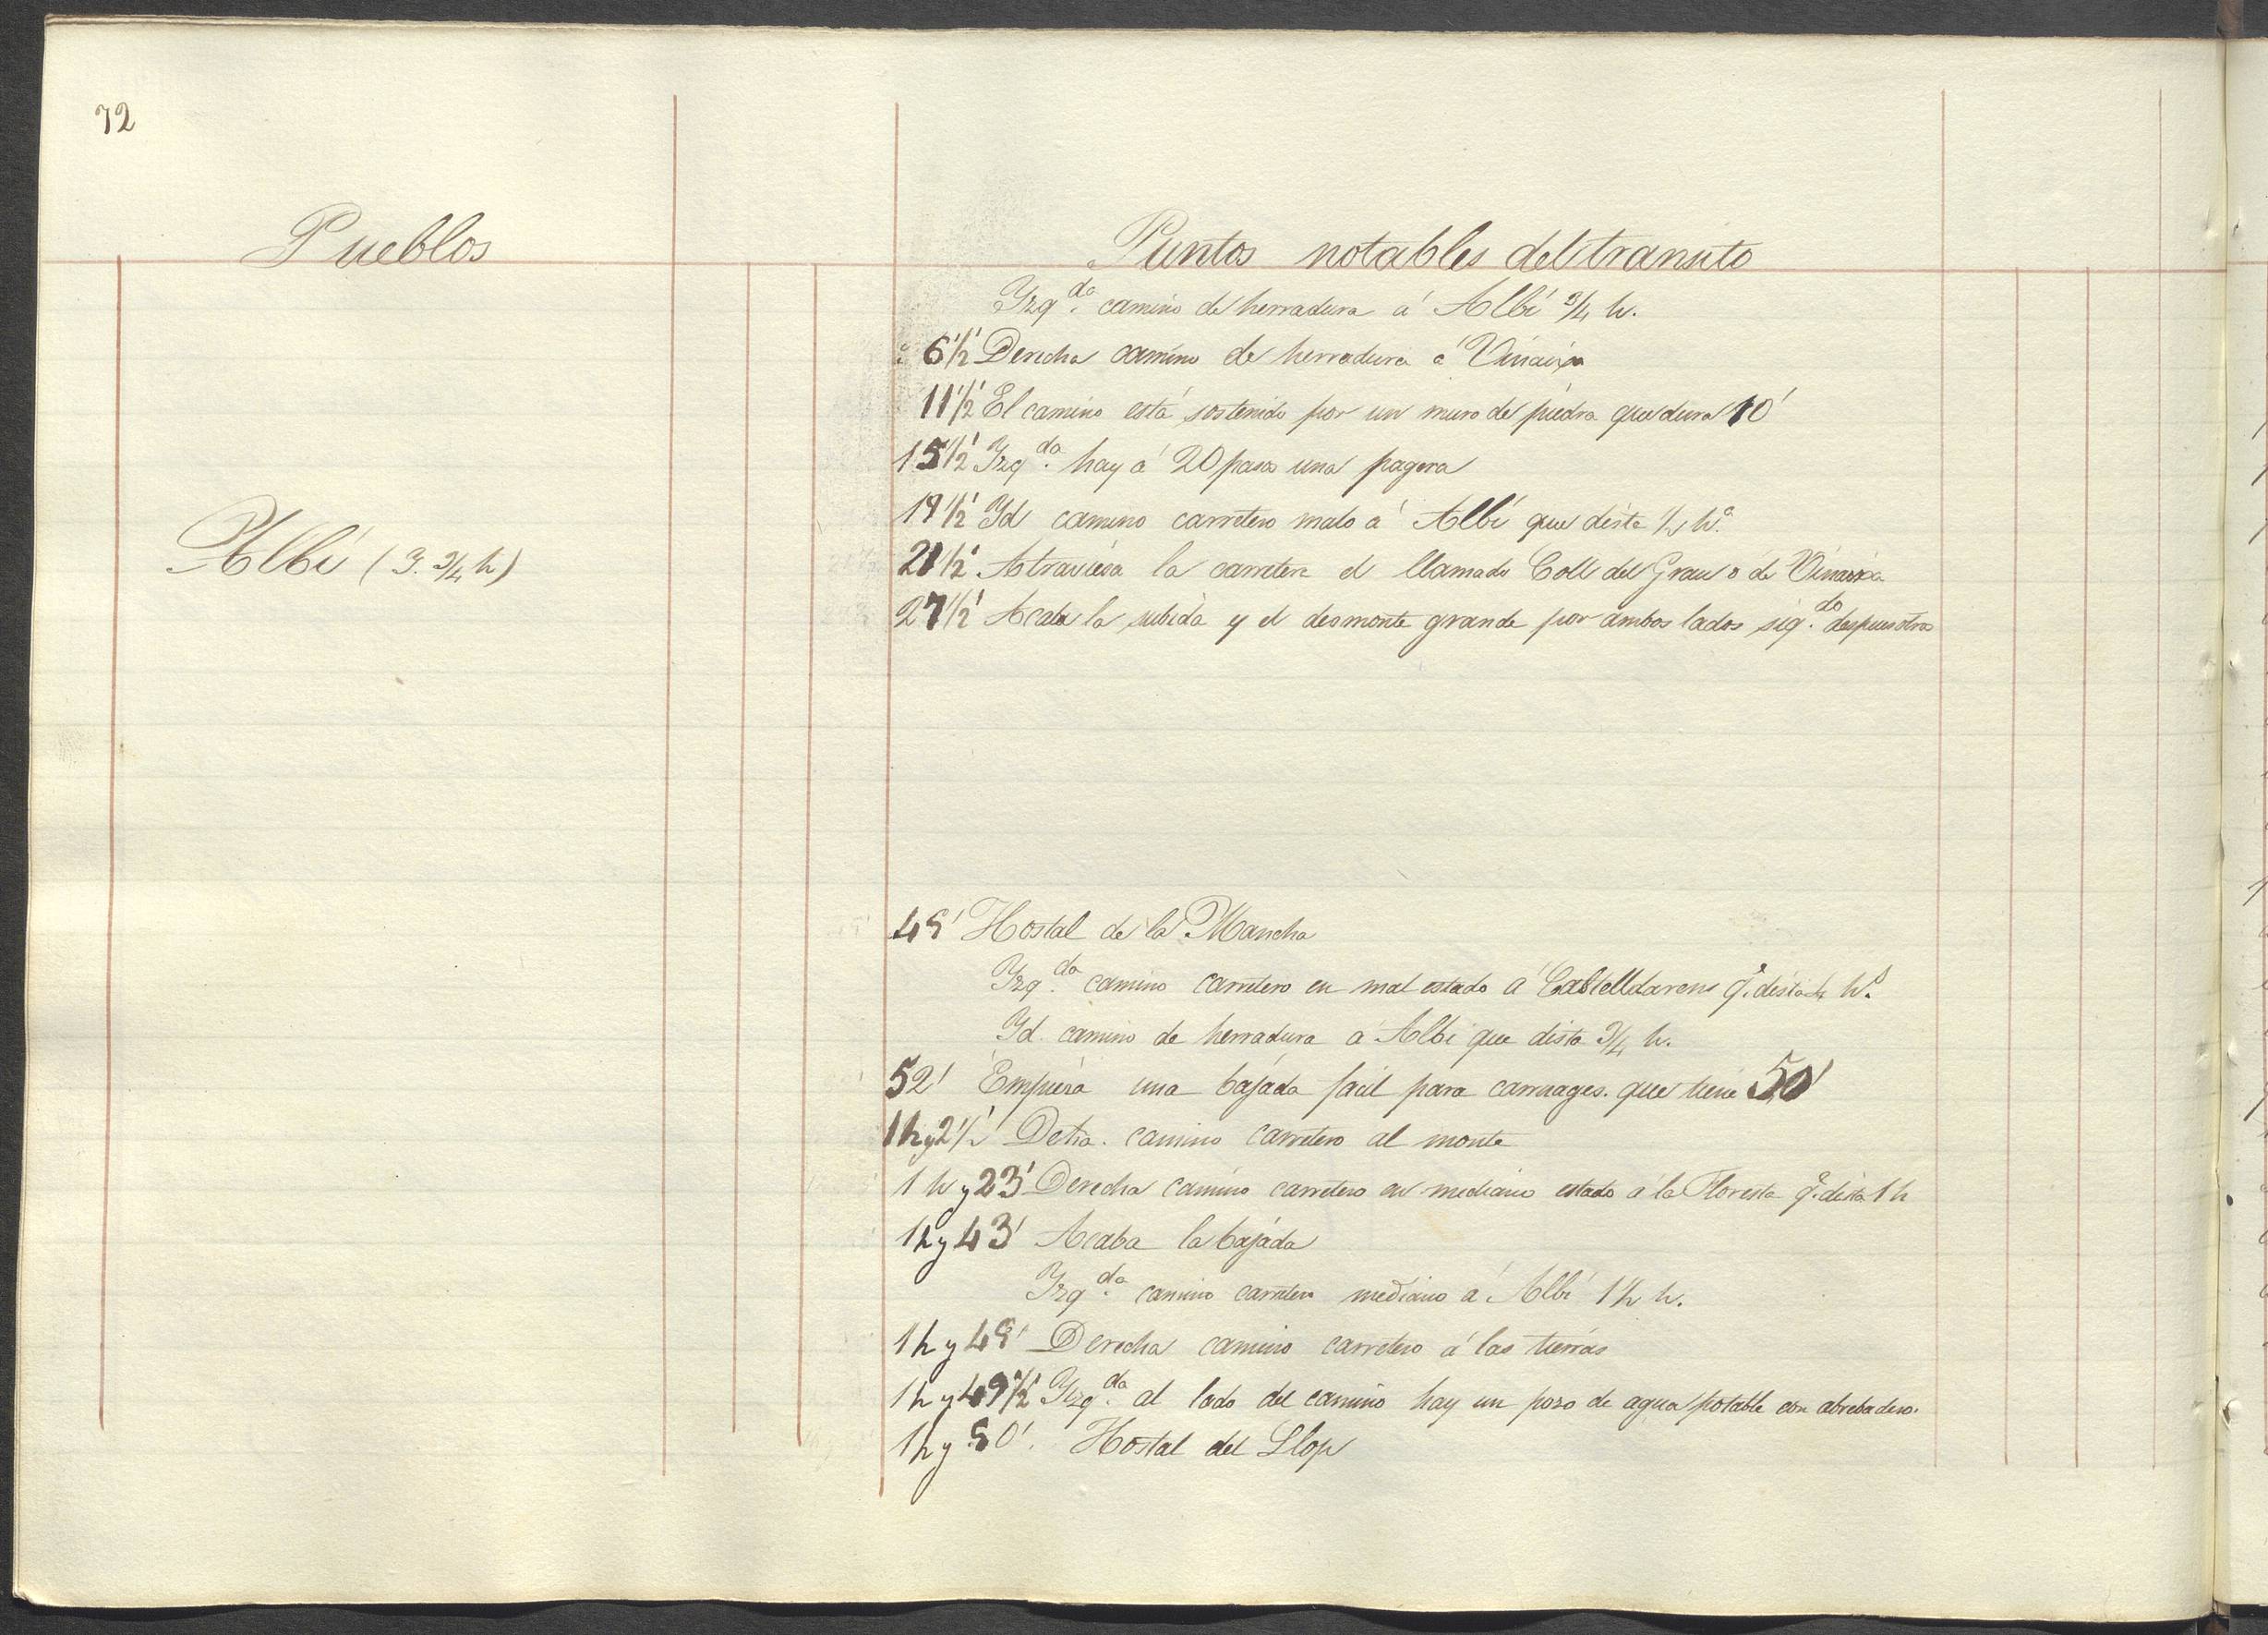 72
Pueblos
Puntos notables del transito
Yzq.da camino de herradura á Albi 3/4 h.
6'1/2 Derecha camino de herradura á Vinaixa
11'1/2 El camino está sostenido por un muro de piedra que dura 10'
15'1/2 Yzq.da hay á 20 pasos una pagera
19'1/2 Yd camino carretero malo á Albi que dista 1/2 h.a
Albi (3. 3/4 h)
21'1/2 Atraviesa la carretera el llamado Coll del Grau o de Vinaixa
27'1/2 Acaba la subida y el desmonte grande por ambos lados sig.do despues otro
45' Hostal de la Mancha
Yzq.da camino carretero en mal estado á Castelldarens q.e dista h.s
Yd. camino de herradura a Albi que dista 3/4 h.
52' Empieza una bajada facil para carruages. que tiene 50'
1 h y 2'1/2 Dcha. camino carretero al monte
1 h y 23' Derecha camino carretero en mediano estado á la Floresta q.e dista 1 h
1 h y 43' Acaba la bajada
Yzq.da camino carretero mediano á Albi 1 1/2 h.
1 h y 48' Derecha camino carretero á las tierras
1 h y 49'1/2 Yzq.da al lado del camino hay un pozo de agua potable con abrebadero.
1 h y 50'. Hostal del Llop